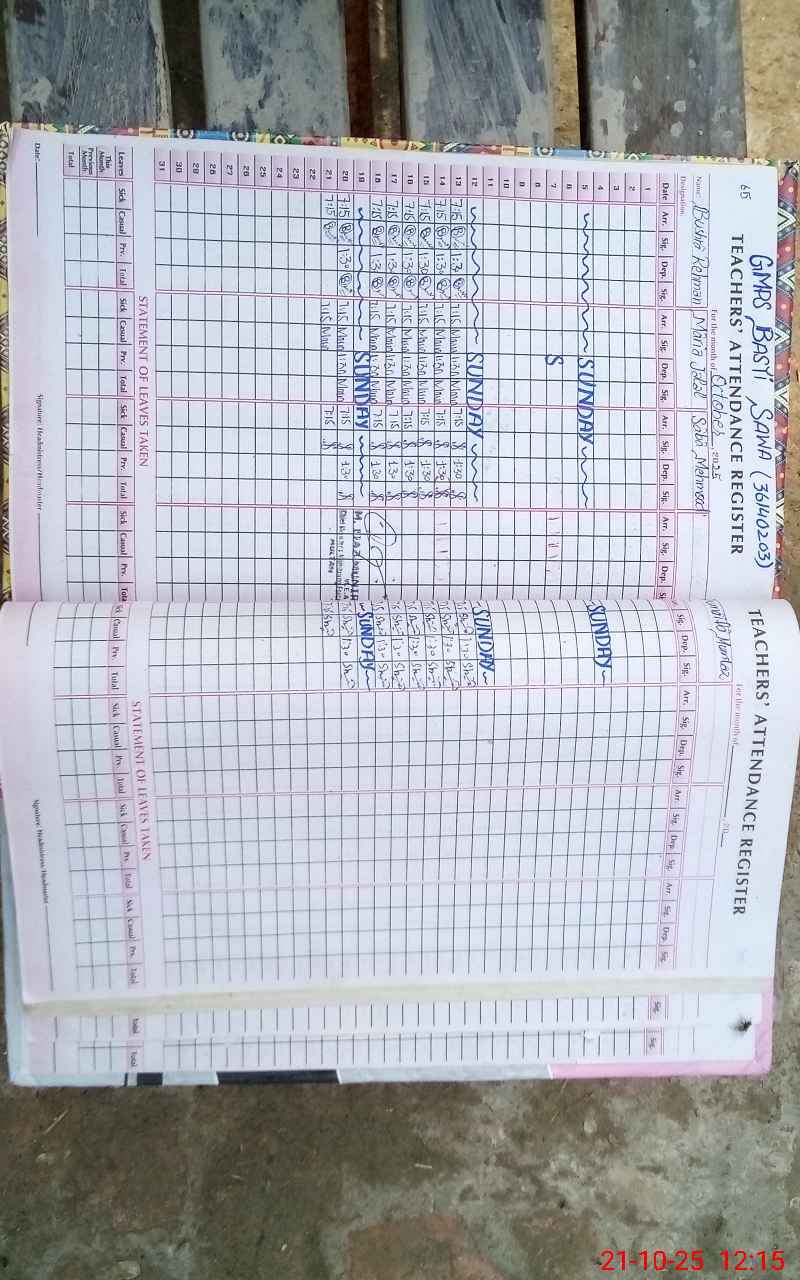 65
GMPS BASTI SAWA (36140203)
TEACHERS' ATTENDANCE REGISTER
For the month of October 2025
Name Bushra Rehman Maria Jalal Saba Mehmood
Designation
Date Arr. Sig. Dep. Sig. Arr. Sig. Dep. Sig. Arr. Sig. Dep. Sig. Arr. Sig. Dep.
1
2
3
4
5 SUNDAY
6
7 S
8
9
10
11
12 SUNDAY
13 7:15 1:30 7:15 1:30 7:15 1:30
14 7:15 1:30 7:15 1:30 7:15 1:30
15 7:15 1:30 7:15 1:30 7:15 1:30
16 7:15 1:30 7:15 1:30 7:15 1:30
17 7:15 1:30 7:15 1:30 7:15 1:30
18 7:15 1:30 7:15 1:30 7:15 1:30
19 SUNDAY
20 7:15 1:30 7:15 1:30 7:15 1:30
21 7:15 7:15 7:15
22
23
24
25
26
27
28
29
30
31
MULTAN
STATEMENT OF LEAVES TAKEN
Leaves Sick Casual Prv. Total Sick Casual Prv. Total Sick Casual Prv. Total Sick Casual Prv. Total
This Month
Previous Month
Total
Date: Signature: Headmistress/Headmaster
TEACHERS' ATTENDANCE REGISTER
For the month of 20
Mumtaz
Sig. Dep. Sig. Arr. Sig. Dep. Sig. Arr. Sig. Dep. Sig. Arr. Sig. Dep. Sig. Sig. Sig.
SUNDAY
SUNDAY
1:30
1:30
1:30
1:30
1:30
1:30
SUNDAY
1:30
STATEMENT OF LEAVES TAKEN
Casual Prv. Total Sick Casual Prv. Total Sick Casual Prv. Total Sick Casual Prv. Total Total Total
Signature: Headmistress/Headmaster
21-10-25 12:15